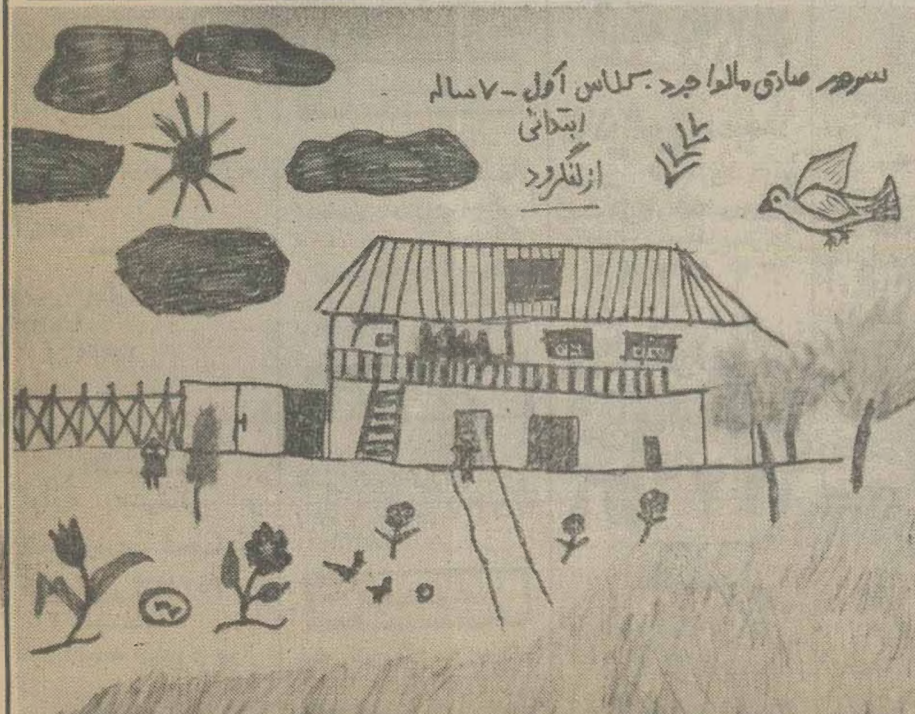 سرور صادق مالواجرد - کلاس اول - ۷ ساله
ابتدائی
از لنگرود